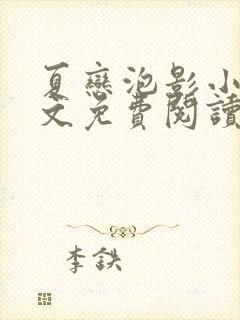 夏戀泡影小
文免費閱讀
李鉄